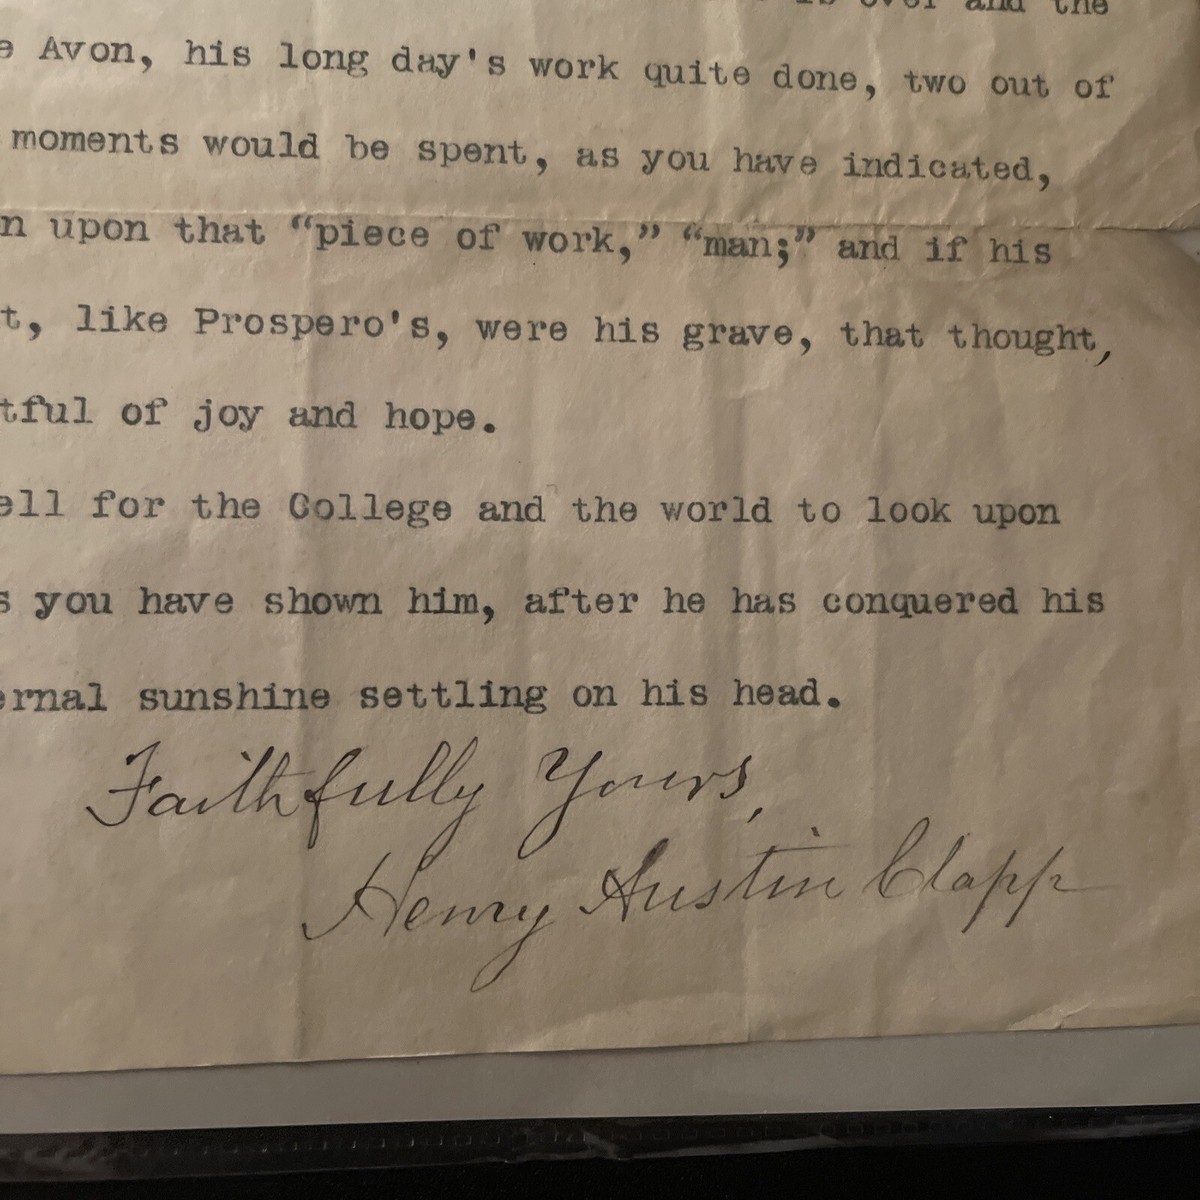 over and the
Avon, his long day's work quite done, two out of
moments would be spent, as you have indicated,
n upon that “piece of work,” “man;” and if his
t, like Prospero's, were his grave, that thought,
tful of joy and hope.
ell for the College and the world to look upon
s you have shown him, after he has conquered his
ernal sunshine settling on his head.
Faithfully Yours,
Henry Austin Clapp